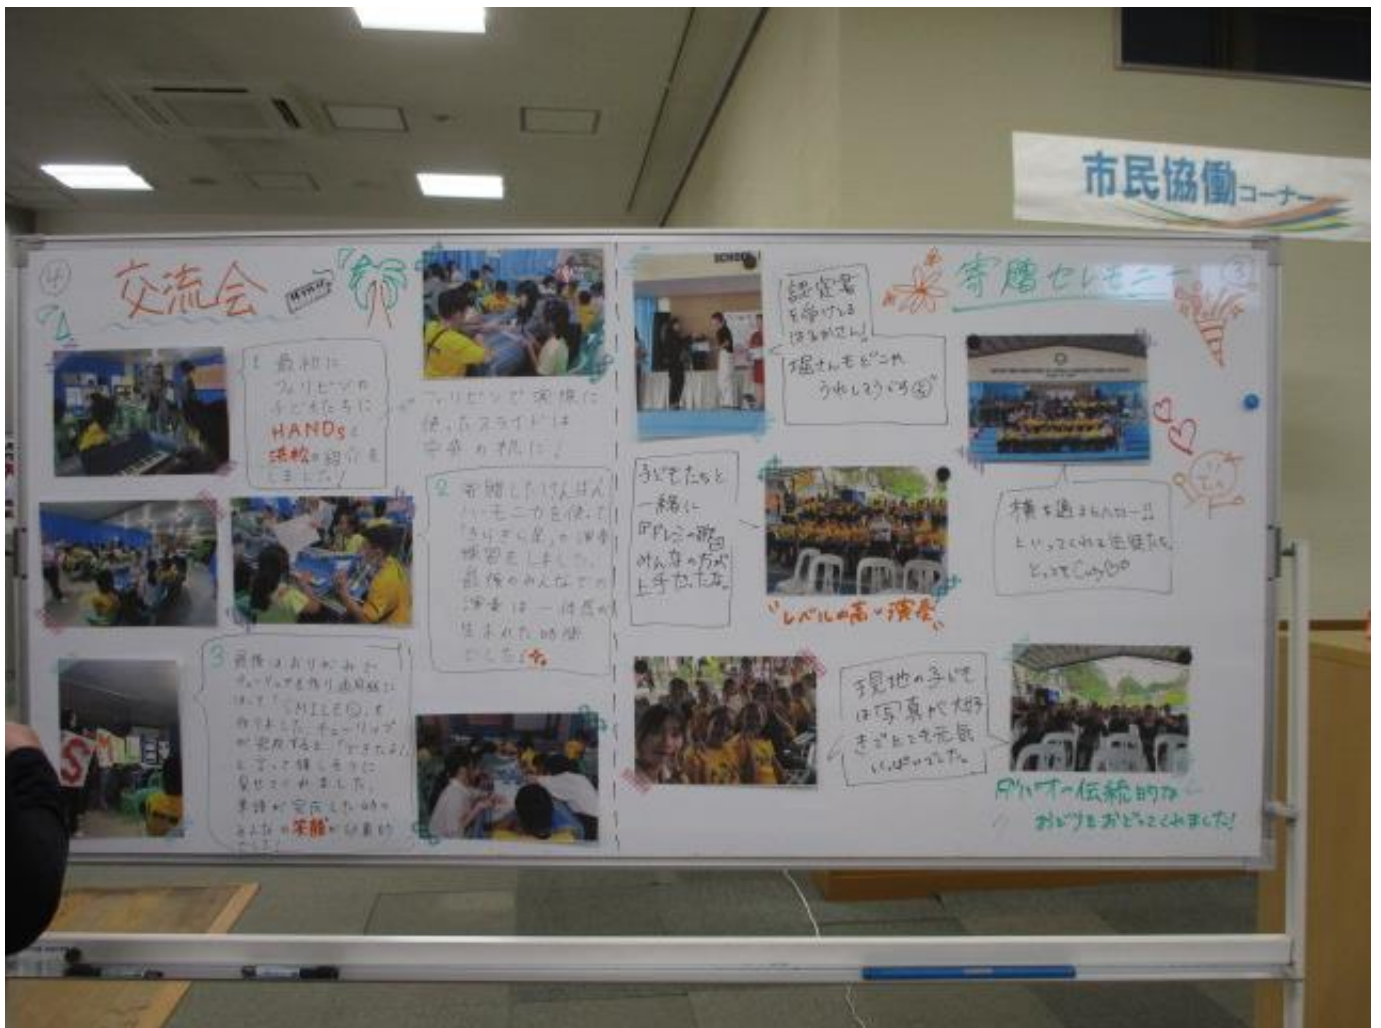 市民協働コーナー
④
交流会
1 最初に
フィリピンの
子どもたちに
HANDsと
浜松の紹介を
しました!
フィリピンで演奏に
使ったスライドは
中央の机に!
2 寄贈したけんばん
ハーモニカを使って
「きらきら星」の演奏
練習をしました。
最後のみんなでの
演奏は一体感の
生まれた時間
でした
3 最後はおりがみで
チューリップを作り画用紙に
はって、「SMILE」を
作りました。チューリップ
が完成すると「できたよ!」
と言って嬉しそうに
見せてくれました。
単語が完成した時の
みんなの笑顔が印象的
でした!
S M I L
③
寄贈セレモニー
SCHOOL
認定書
を受けとる
はるかさん!
堀さんもどこか
うれしそうです
子どもたちと
一緒に
『ドレミの歌』
みんなの方が
上手だったな。
"レベルの高い演奏"
横を通るたび
といってくれる生徒たち
とっても
現地の子ども
は写真が大好
きでとても元気
いっぱいでした。
ダバオの伝統的な
おどりをおどってくれました!